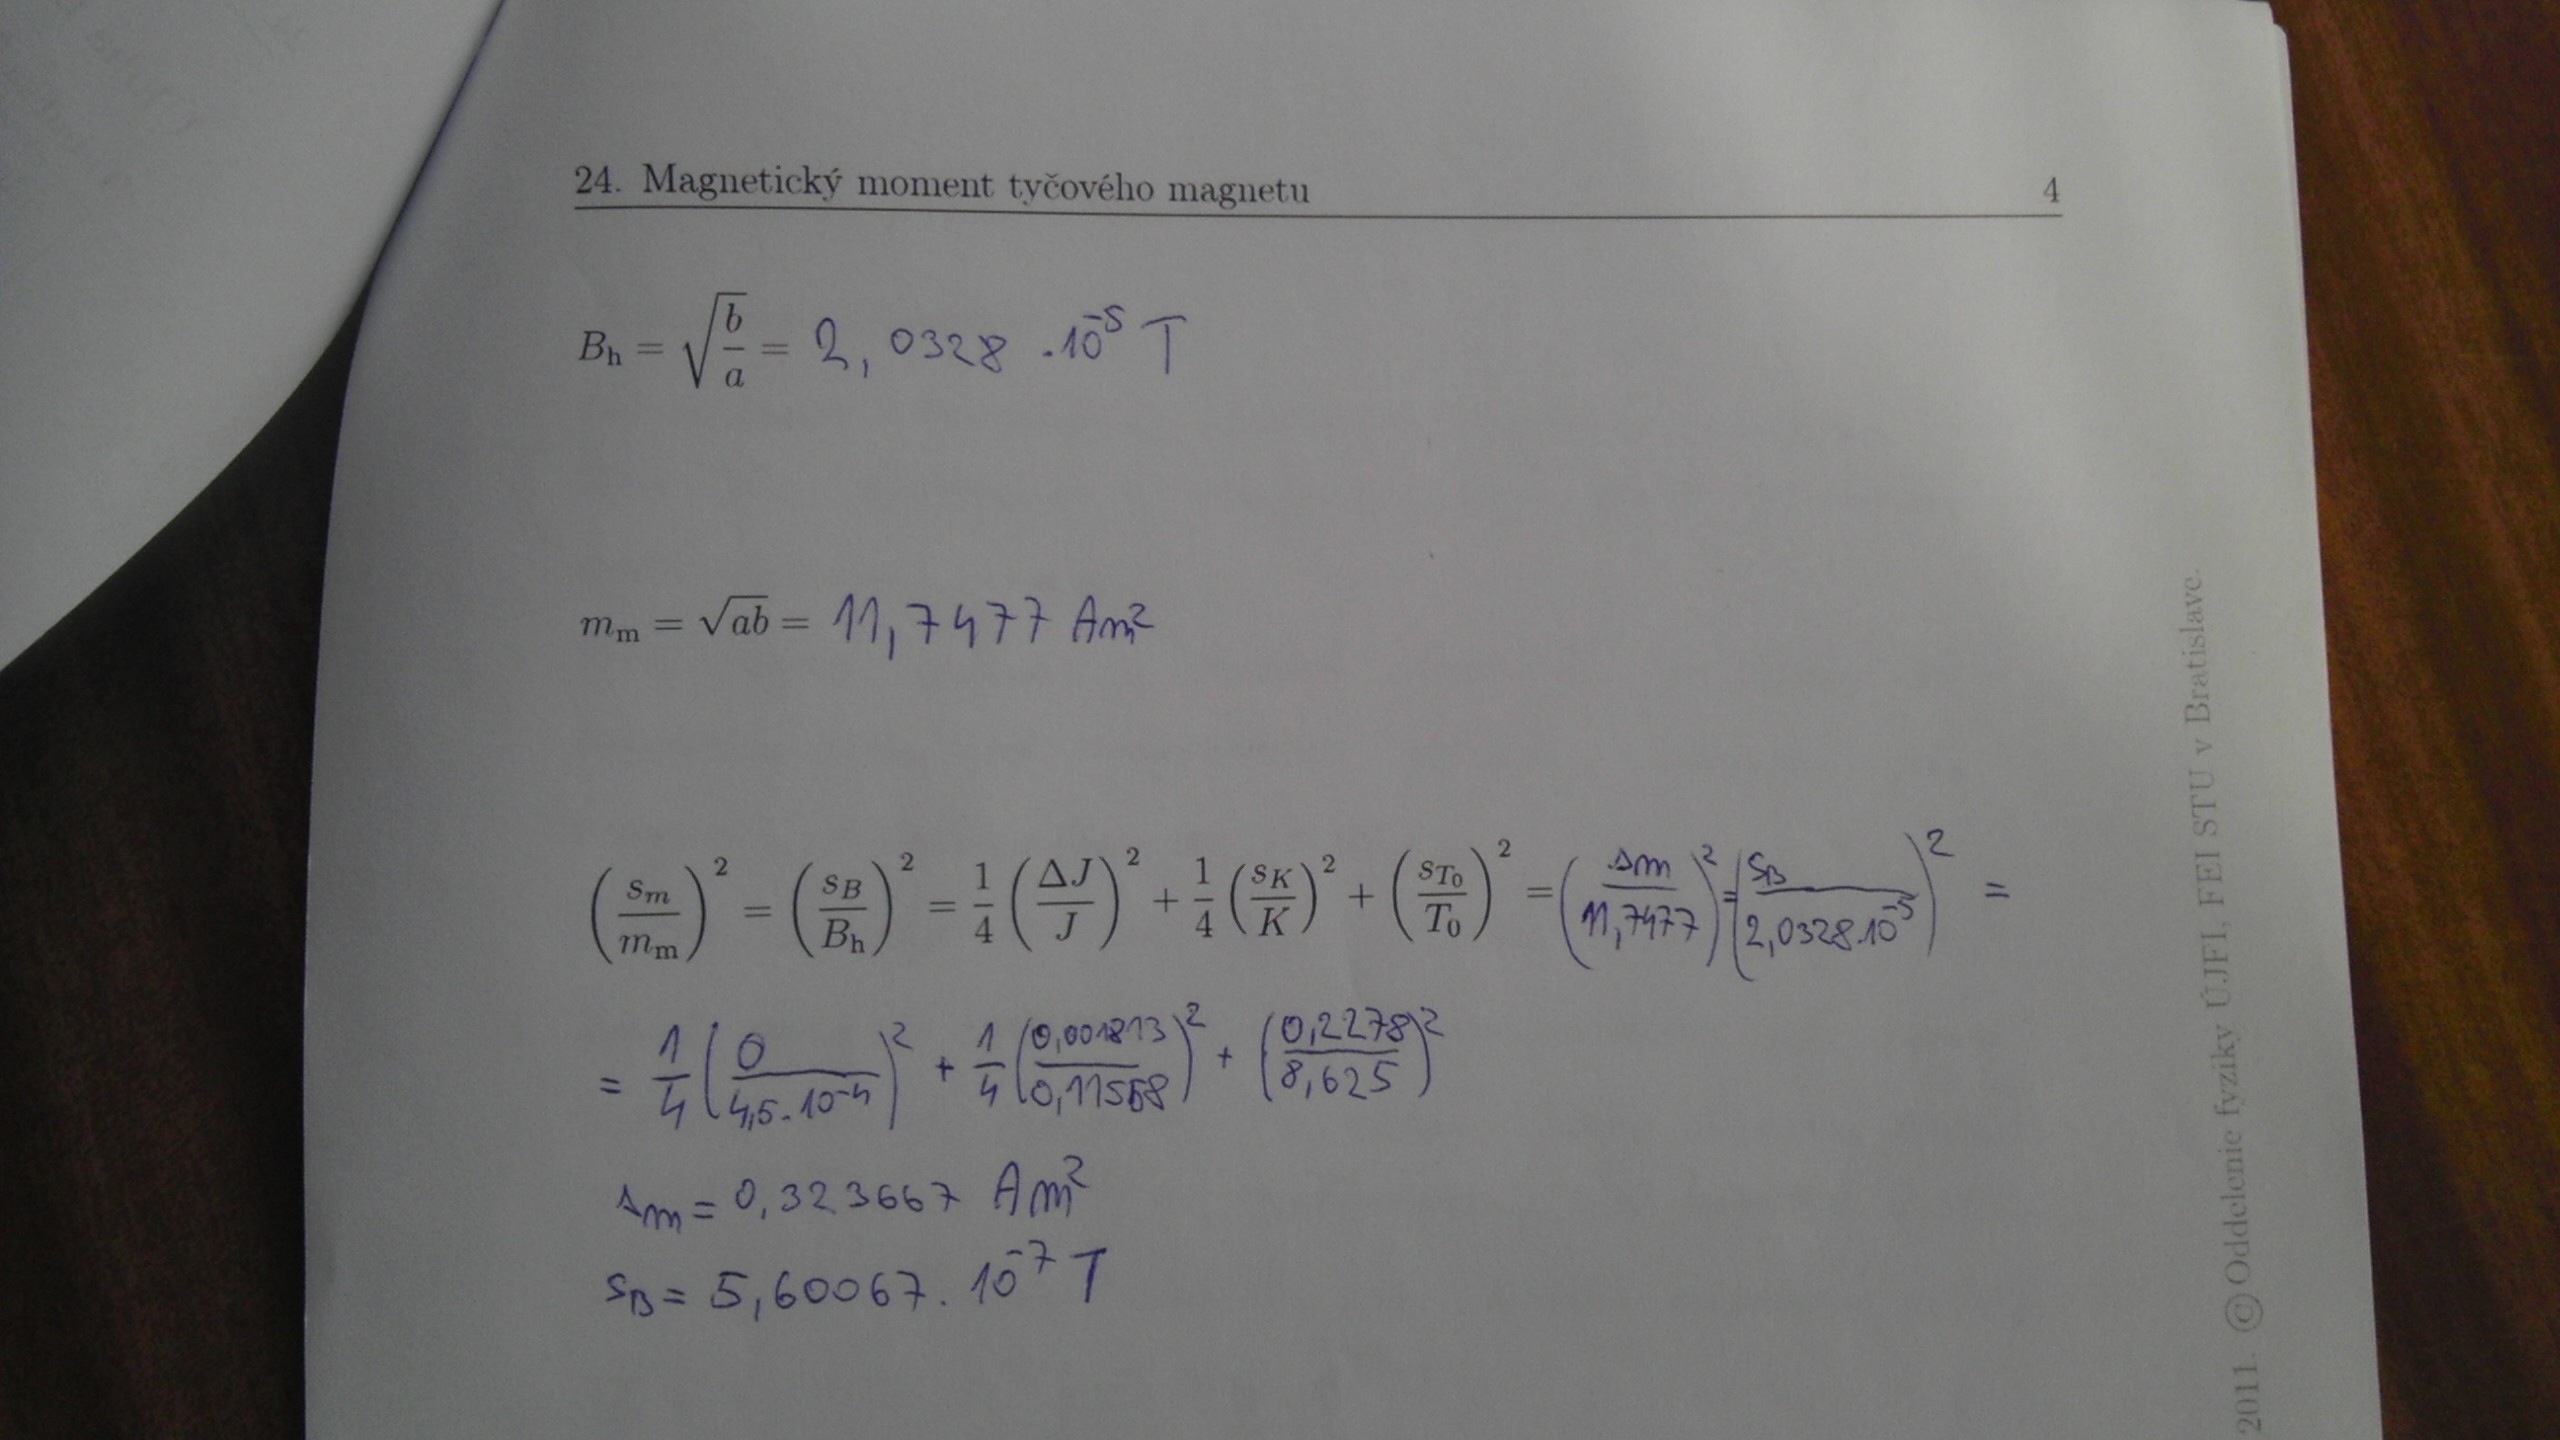 24. Magnetický moment tyčového magnetu 4
B_h = √(b/a) = 2,0328 · 10^-5 T
m_m = √(ab) = 11,7477 Am²
(s_m/m_m)² = (s_B/B_h)² = 1/4 (ΔJ/J)² + 1/4 (s_K/K)² + (s_T₀/T₀)² = (s_m/11,7477)² = (s_B/2,0328·10^-5)² =
= 1/4 (0/4,5·10^-4)² + 1/4 (0,001813/0,11558)² + (0,2278/8,625)²
s_m = 0,323667 Am²
s_B = 5,60067 · 10^-7 T
2011. © Oddelenie fyziky ÚJFI, FEI STU v Bratislave.